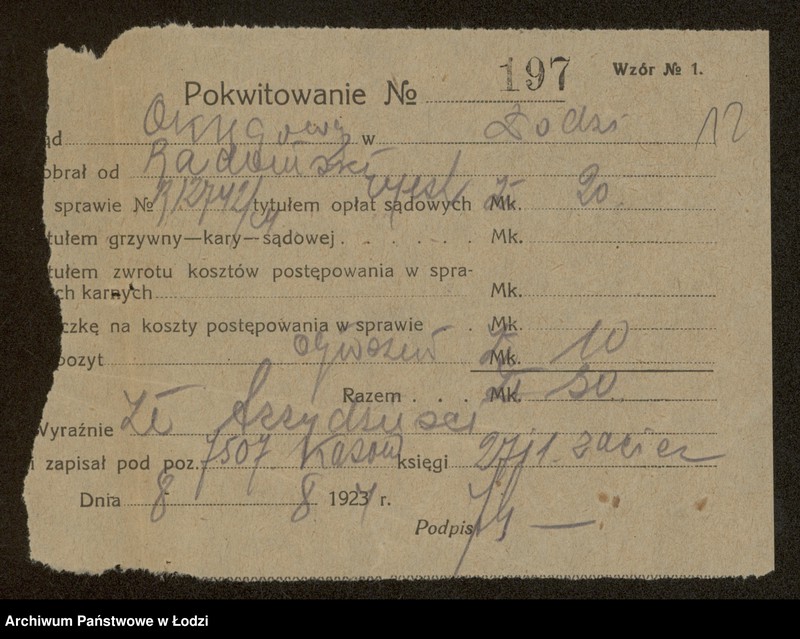 Pokwitowanie № 197 Wzór № 1.
ąd Okręgowy w Łodzi 12
obrał od Radomski
sprawie № tytułem opłat sądowych Zł Mk. 20
tułem grzywny—kary—sądowej . . . . . . Mk.
tułem zwrotu kosztów postępowania w spra-
ch karnych Mk.
czkę na koszty postępowania w sprawie . Mk.
pozyt ogłoszeń Zł Mk. 10
Razem . . . Zł Mk. 30
Wyraźnie Zł trzydzieści
i zapisał pod poz. 7507 kasow księgi
Dnia 8 8 1924 r.
Podpis
Archiwum Państwowe w Łodzi